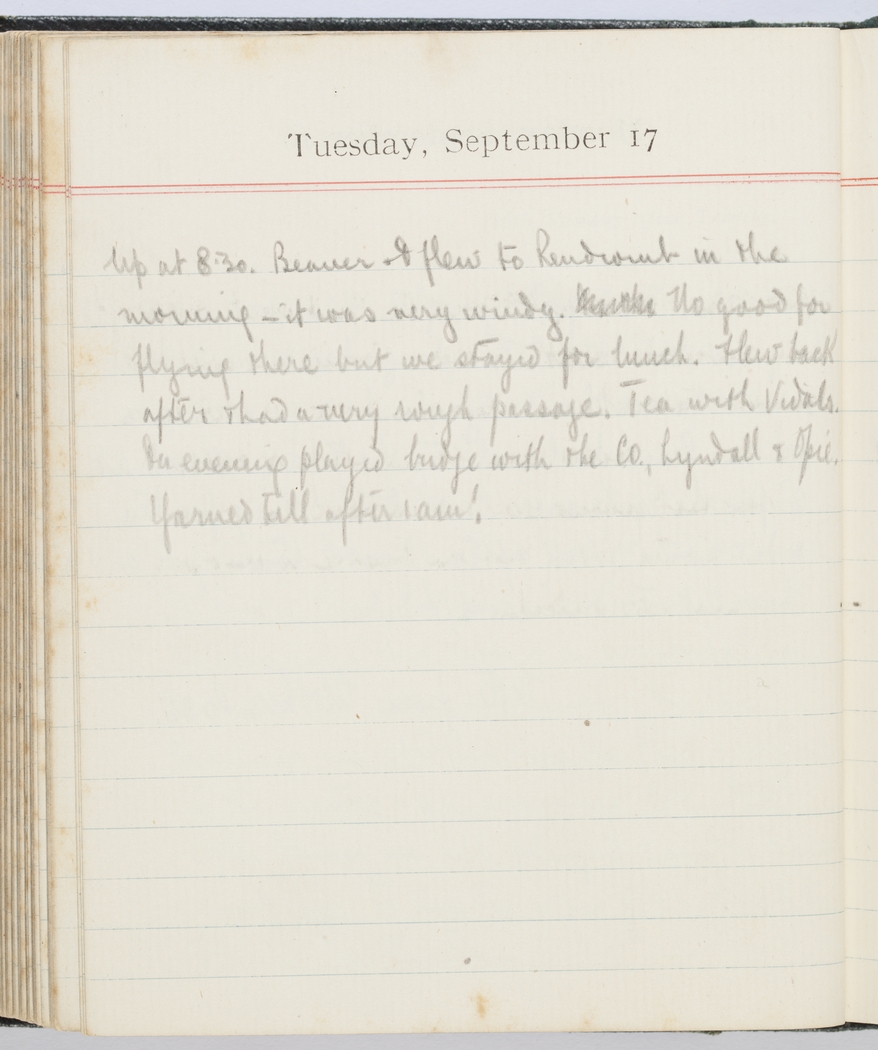 Tuesday, September 17
Up at 8.30. Beaver & I flew to in the
morning – it was very windy. No good for
flying there but we stayed for lunch. Flew back
after & had a very rough passage. Tea with Vidals.
In evening played bridge with the Co., Lyndall & Opie.
Yarned till after 1 am!